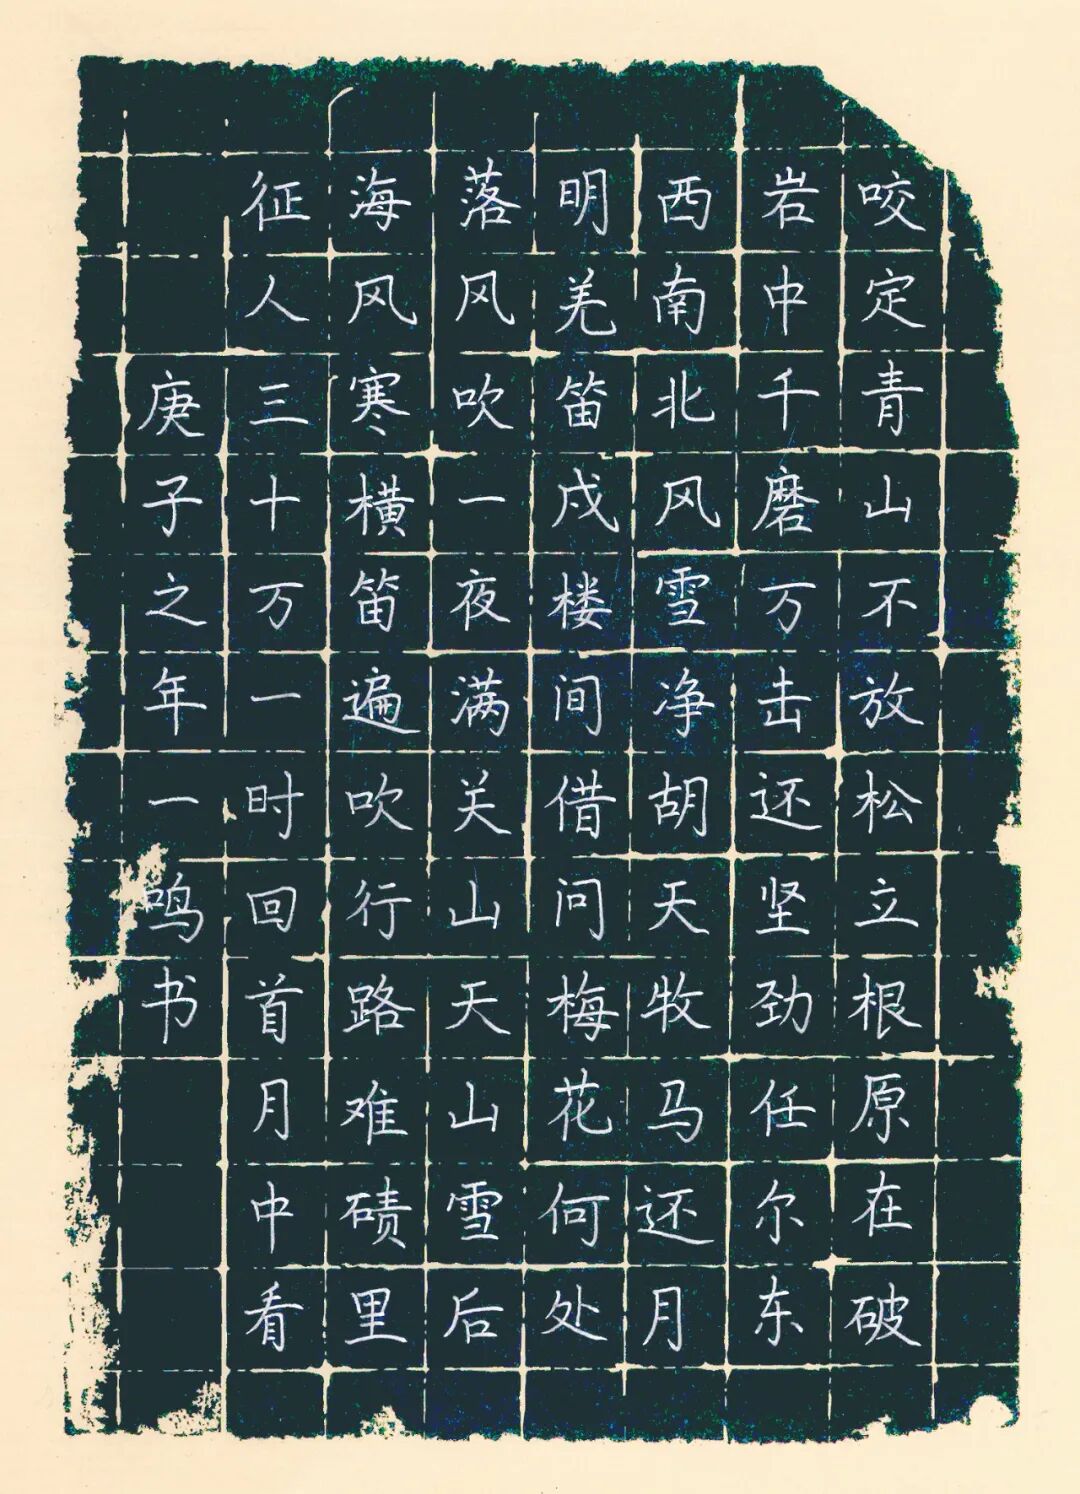 咬定青山不放松立根原在破
岩中千磨万击还坚劲任尔东
西南北风雪净胡天牧马还月
明羌笛戍楼间借问梅花何处
落风吹一夜满关山天山雪后
海风寒横笛遍吹行路难碛里
征人三十万一时回首月中看
庚子之年一鸣书